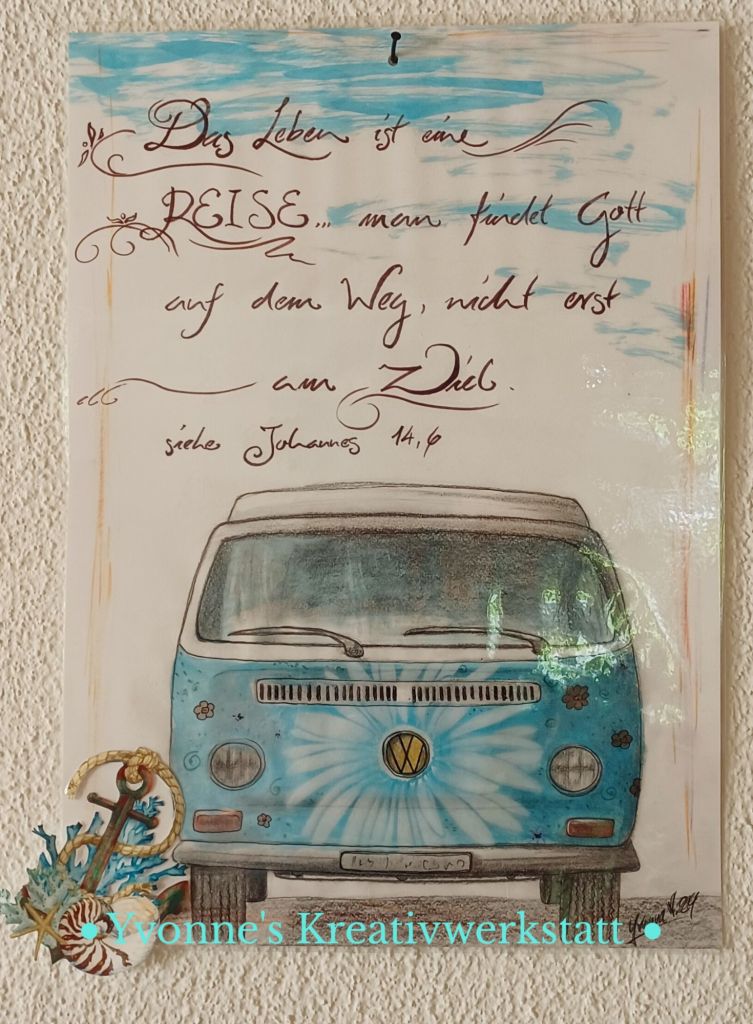 Das Leben ist eine
REISE... man findet Gott
auf dem Weg, nicht erst
am Ziel.
siehe Johannes 14,6
VW
• Yvonne's Kreativwerkstatt •
Yvonne